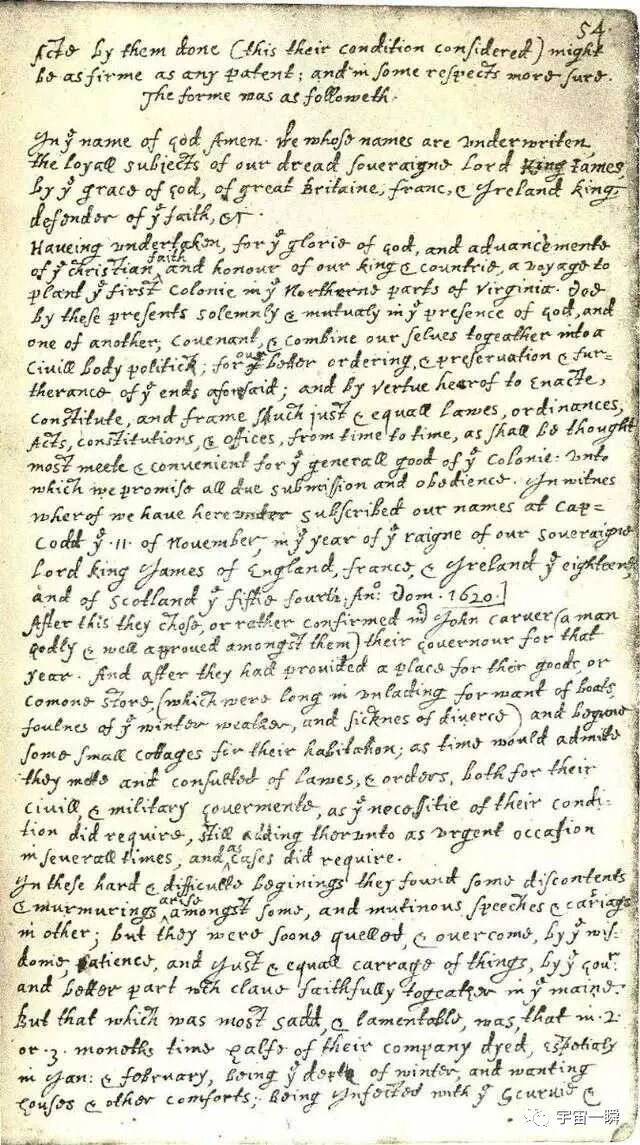 54.
Acte by them done (this their condition considered) might
be as firme as any patent; and in some respects more sure.
The forme was as followeth.
In yͤ name of god Amen. We whose names are underwriten,
the loyall subjects of our dread soveraigne Lord King James,
by yͤ grace of god, of great Britaine, franc, & Ireland king,
defender of yͤ faith, &c.
Haveing undertaken, for yͤ glorie of god, and advancemente
of yͤ christian faith and honour of our king & countrie, a voyage to
plant yͤ first colonie in yͤ Northerne parts of Virginia. Doe
by these presents solemnly & mutualy in yͤ presence of god, and
one of another; covenant, & combine our selves togeather into a
Civill body politick; for our better ordering, & preservation & fur=
therance of yͤ ends aforesaid; and by vertue hearof to Enacte,
constitute, and frame shuch just & equall lawes, ordinances,
Acts, constitutions, & offices, from time to time, as shall be thought
most meete & convenient for yͤ generall good of yͤ Colonie: unto
which we promise all due submission and obedience. In witnes
wherof we have hereunder subscribed our names at Cap=
Codd yͤ .11. of November, in yͤ year of yͤ raigne of our soveraigne
Lord king James of England, france, & Ireland yͤ eighteenth
and of Scotland yͤ fiftie fourth. Anͦ: Dom. 1620.]
After this they chose, or rather confirmed mͬ John carver (a man
godly & well aproved amongst them) their governour for that
year. And after they had provided a place for their goods, or
comone store, (which were long in unlading for want of boats,
foulnes of yͤ winter weather, and sicknes of diverce) and begune
some small cottages for their habitation; as time would admitte
they mette and consulted of lawes, & orders, both for their
civill, & military govermente, as yͤ necessitie of their condi-
tion did require, still adding therunto as urgent occasion
in severall times, and as cases did require.
In these hard & difficulte beginings they found some discontents
& murmurings arise amongst some, and mutinous speeches & cariags
in other; but they were soone quelled, & overcome, by yͤ wis-
dome, patience, and just & equall carrage of things, by yͤ govͬ
and better part wch clave faithfully togeather in yͤ maine.
But that which was most sadd, & lamentable, was, that in .2.
or .3. moneths time halfe of their company dyed, espetialy
in Jan: & february, being yͤ depth of winter, and wanting
houses & other comforts; being Infected with yͤ Scurvie &
宇宙一瞬